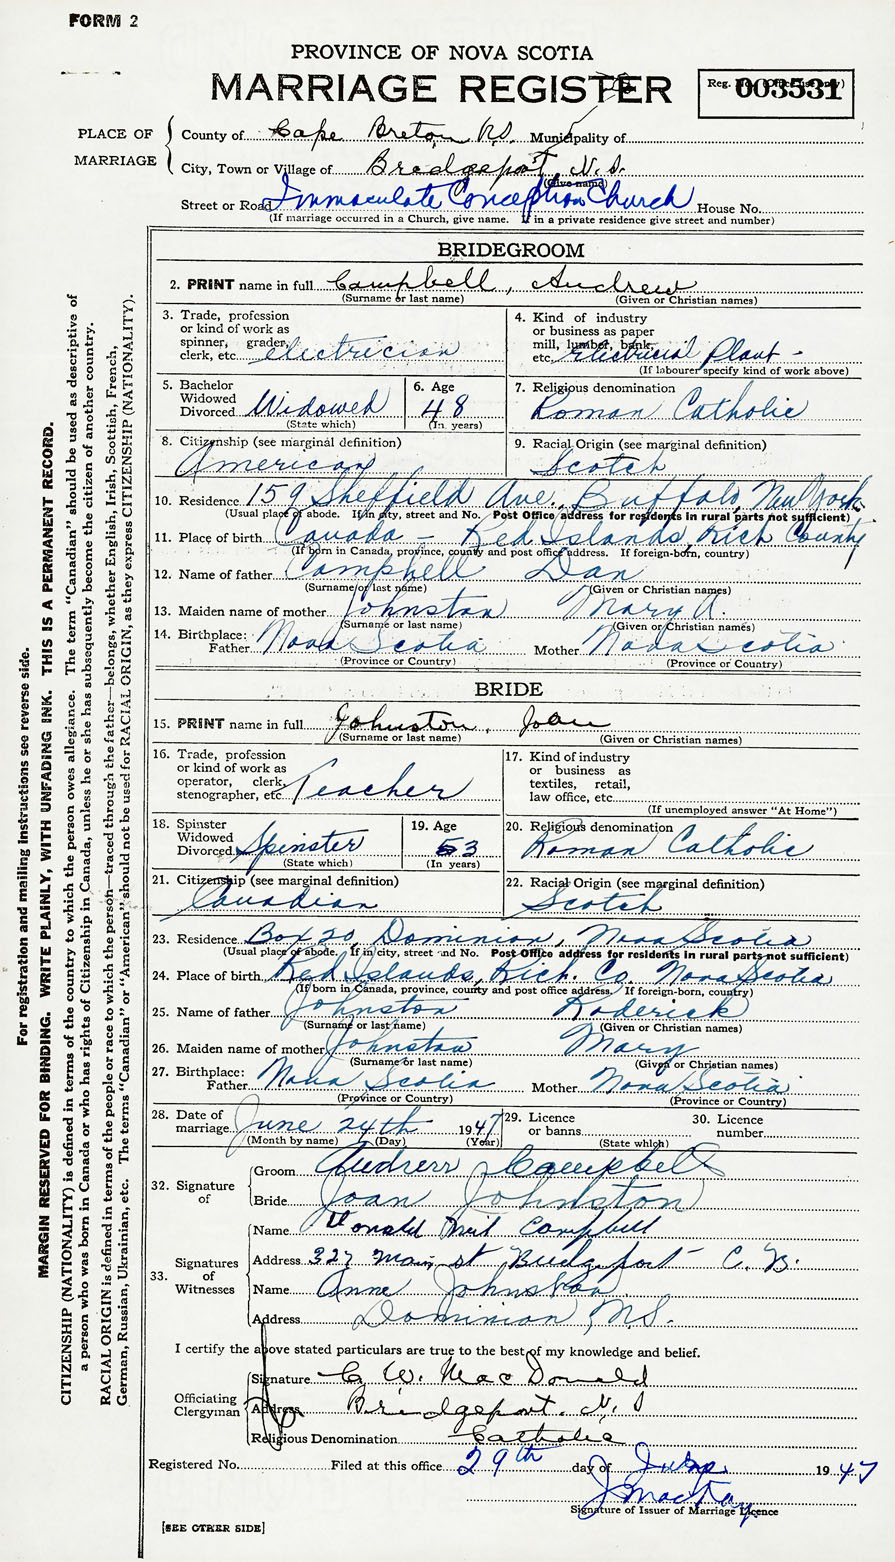 FORM 2
PROVINCE OF NOVA SCOTIA
MARRIAGE REGISTER
003531
PLACE OF MARRIAGE
County of Cape Breton, N.S. Municipality of
City, Town or Village of Bridgeport N.S.
(Give name)
Street or Road Immaculate Conception Church House No.
(If marriage occurred in a Church, give name. If in a private residence give street and number)
BRIDEGROOM
2. PRINT name in full Campbell, Andrew
(Surname or last name) (Given or Christian names)
3. Trade, profession or kind of work as spinner, grader, clerk, etc. electrician
4. Kind of industry or business as paper mill, lumber, bank, etc. Electrical Plant -
(If labourer specify kind of work above)
5. Bachelor Widowed Divorced Widowed
(State which)
6. Age 48
(In years)
7. Religious denomination Roman Catholic
8. Citizenship (see marginal definition) American
9. Racial Origin (see marginal definition) Scotch
10. Residence 159 Sheffield Ave., Buffalo, New York
(Usual place of abode. If in city, street and No. Post Office address for residents in rural parts not sufficient)
11. Place of birth Canada - Red Islands, Rich County
(If born in Canada, province, county and post office address. If foreign-born, country)
12. Name of father Campbell Dan
(Surname or last name) (Given or Christian names)
13. Maiden name of mother Johnston Mary A.
(Surname or last name) (Given or Christian names)
14. Birthplace: Father Nova Scotia Mother Nova Scotia
(Province or Country) (Province or Country)
BRIDE
15. PRINT name in full Johnston, Joan
(Surname or last name) (Given or Christian names)
16. Trade, profession or kind of work as operator, clerk, stenographer, etc. Teacher
17. Kind of industry or business as textiles, retail, law office, etc.
(If unemployed answer "At Home")
18. Spinster Widowed Divorced Spinster
(State which)
19. Age 53
(In years)
20. Religious denomination Roman Catholic
21. Citizenship (see marginal definition) Canadian
22. Racial Origin (see marginal definition) Scotch
23. Residence Box 20 Dominion, Nova Scotia
(Usual place of abode. If in city, street and No. Post Office address for residents in rural parts not sufficient)
24. Place of birth Red Islands, Rich. Co. Nova Scotia
(If born in Canada, province, county and post office address. If foreign-born, country)
25. Name of father Johnston Roderick
(Surname or last name) (Given or Christian names)
26. Maiden name of mother Johnston Mary
(Surname or last name) (Given or Christian names)
27. Birthplace: Father Nova Scotia Mother Nova Scotia
(Province or Country) (Province or Country)
28. Date of marriage June 24th 1947
(Month by name) (Day) (Year)
29. Licence or banns
(State which)
30. Licence number
32. Signature of
Groom Andrew Campbell
Bride Joan Johnston
33. Signatures of Witnesses
Name Donald Neil Campbell
Address 327 Main st Bridgeport C.B.
Name Anne Johnston
Address Dominion, N.S.
I certify the above stated particulars are true to the best of my knowledge and belief.
Officiating Clergyman
Signature C. W. MacDonald
Address Bridgeport. N.S
Religious Denomination Catholic
Registered No. Filed at this office 29th day of 1947
Signature of Issuer of Marriage Licence
[SEE OTHER SIDE]
For registration and mailing instructions see reverse side.
MARGIN RESERVED FOR BINDING. WRITE PLAINLY, WITH UNFADING INK. THIS IS A PERMANENT RECORD.
CITIZENSHIP (NATIONALITY) is defined in terms of the country to which the person owes allegiance. The term "Canadian" should be used as descriptive of
a person who was born in Canada or who has rights of Citizenship in Canada, unless he or she has subsequently become the citizen of another country.
RACIAL ORIGIN is defined in terms of the people or race to which the person—traced through the father—belongs, whether English, Irish, Scottish, French,
German, Russian, Ukrainian, etc. The terms "Canadian" or "American" should not be used for RACIAL ORIGIN, as they express CITIZENSHIP (NATIONALITY).